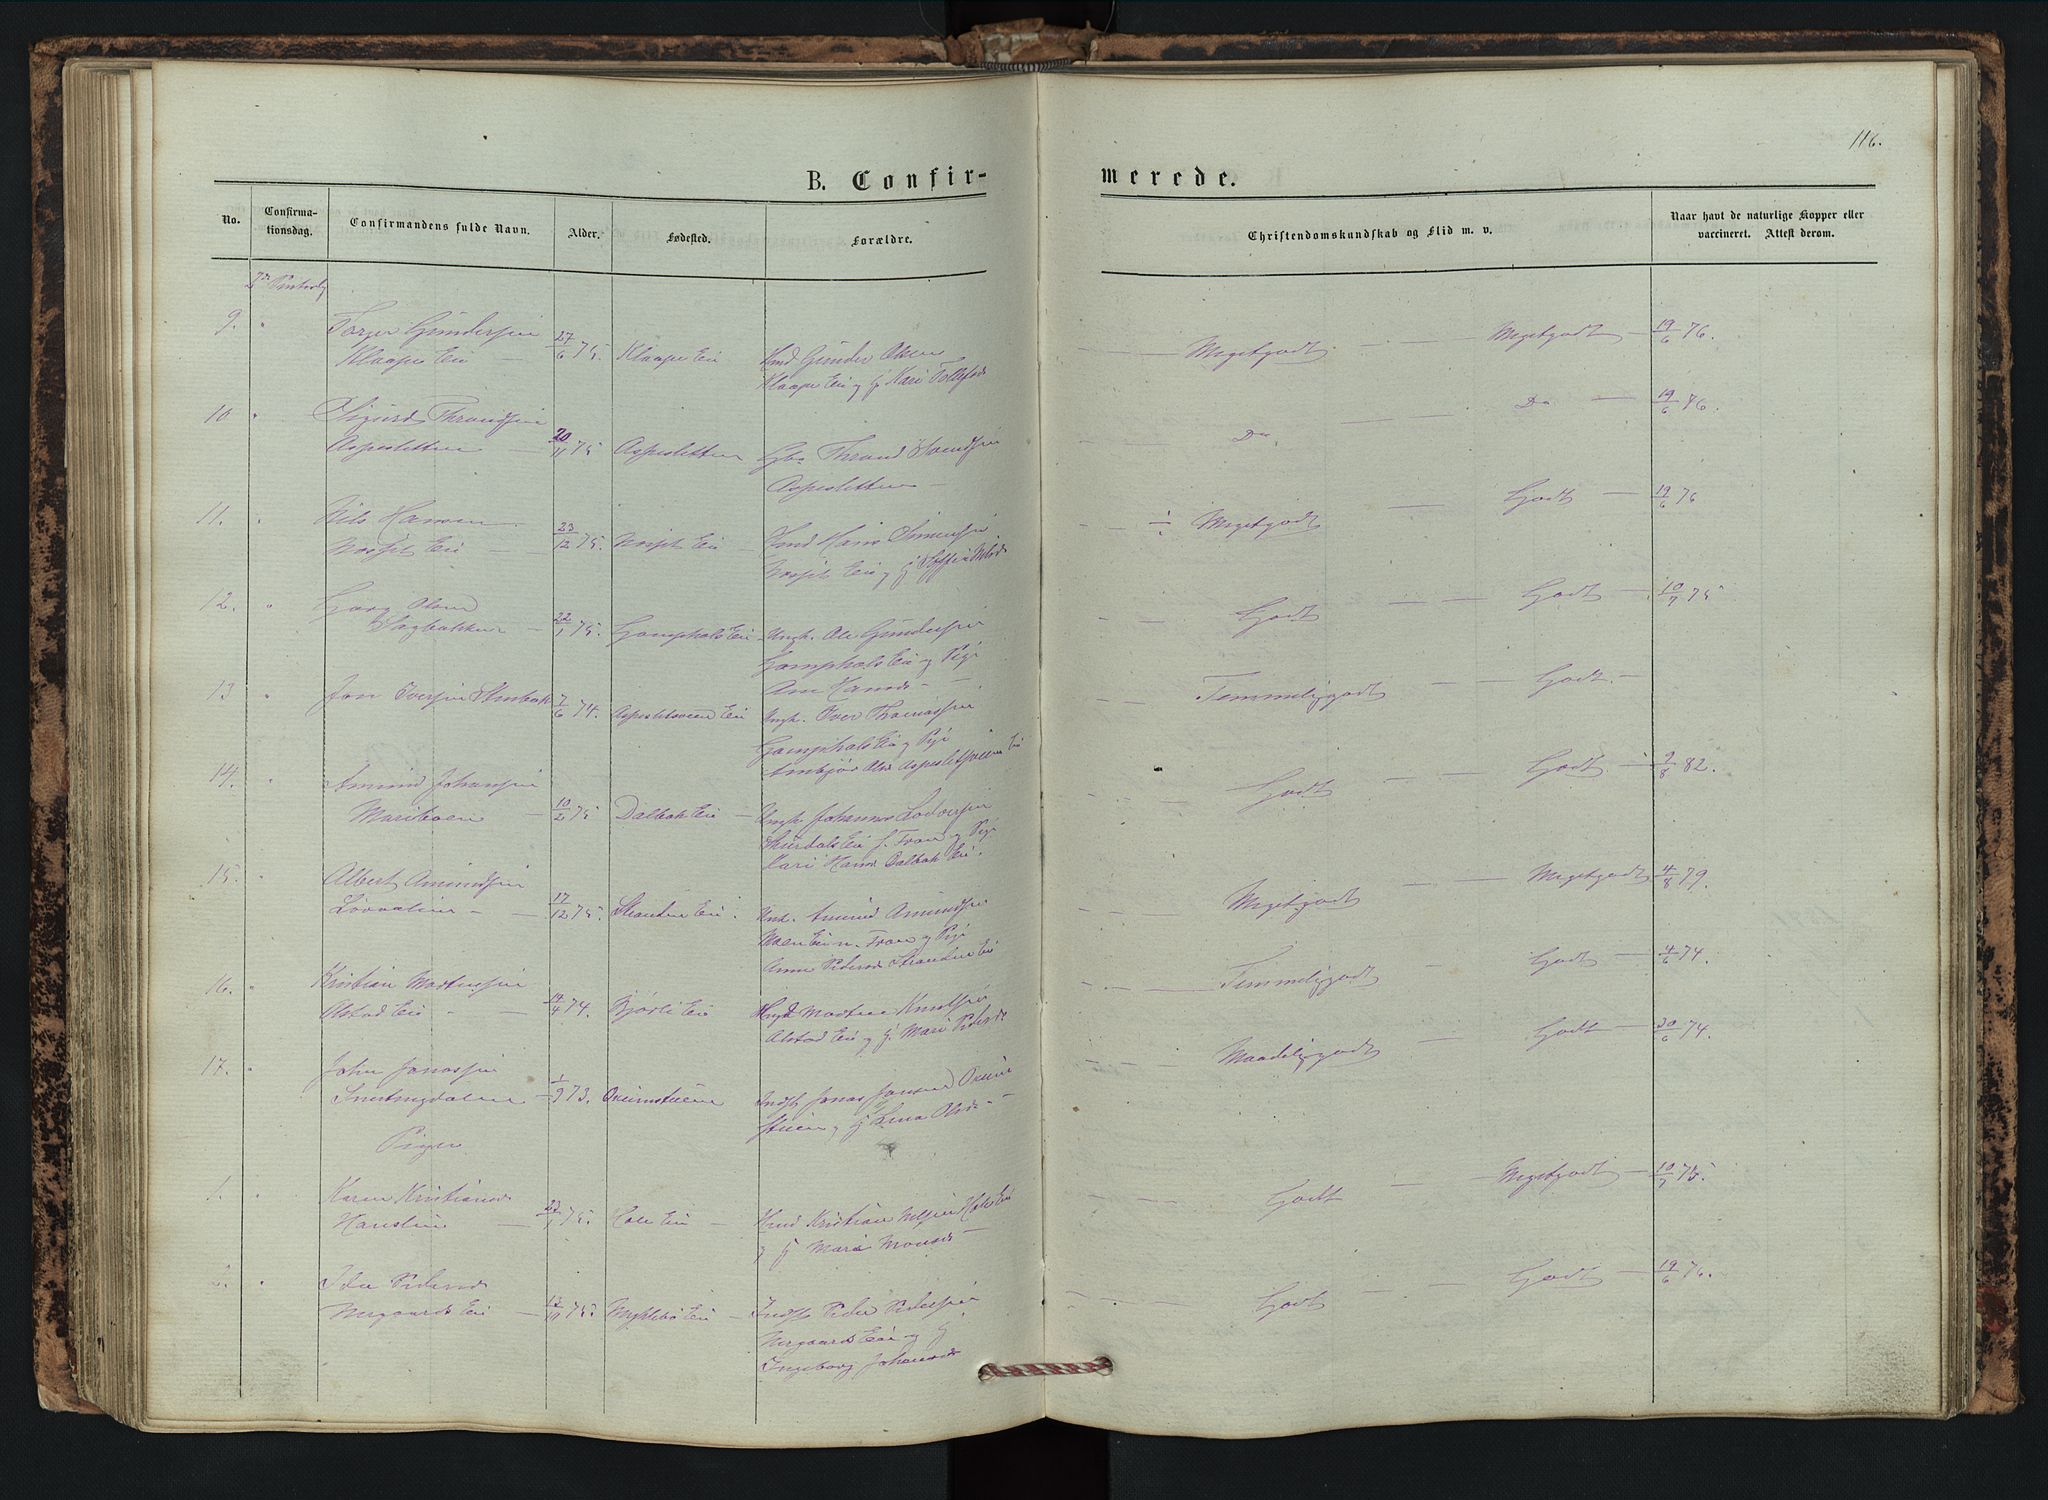 116.
B. Confir-
merede.
No.
Confirma-
tionsdag.
Confirmandens fulde Navn.
Alder.
Fødested.
Forældre.
Christendomskundskab og Flid m. v.
Naar havt de naturlige Kopper eller
vaccineret. Attest derom.
9. " Torger Gundersen
Klaape Eie 27/6 75 Klaape Eie Hmd Gunder Olsen
Klaape Eie og H. Kari Tollefsd
— Megetgodt — — Megetgodt — 19/6 76.
10 " Sigurd Throndsen
Aspesletten — 20/11 75 Aspesletten Gbr. Thrond Svendsen
Aspesletten —
— Do — — Do — 19/6 76.
11. " Nils Hansen
Eie — 23/12 75. Eie — Hmd Hans Simensen
Eie og H.
— Megetgodt — — Godt — 19/6 76
12. " Georg Olsen
Sagbakken — 22/1 75. Gomphals Eie — Ungk. Ole Gundersen
Gomphals Eie og Pige
Ane Hansd —
— Godt — — Godt — 10/7 75
13 " Jon Iversen Stenbak 7/6 74. Eie Ungk. Iver Thomassen
Gomphals Eie og Pige
Anbjør Olsd Eie
— Temmeliggodt — — Godt —
14. " Amund Johansen
Mariboen — 10/2 75 Dalbak Eie — Ungk Johannes
Eie f. Fron og Pige
Kari Hansd Dalbak Eie.
— Godt — — Godt — 9/8 82.
15. " Albert Amundsen
Løvvalien — — 17/12 75. Stranden Eie. Unk. Amund Amundsen
Moen Eie n. Fron og Pige
Anne Pedersd Stranden Eie
— Megetgodt — — Megetgodt 4/8 79.
16. " Kristian Mortensen
Alstad Eie — — 14/4 74. Bjørli Eie Morten Knutsen
Alstad Eie og H. Mari Pedersd
— Temmeliggodt — Godt — 4/6 74.
17. " John Jonassen
— 1/9 73. Indst. Jonas Jonsen
og H. Lena Olsd —
— Maadeliggodt — Godt — 30/6 74.
Piger
1. " Karen Kristiansd
Hanslien — 23/1 75. Hole Eie — Hmd Kristian Nilsen Hole Eie
og H Mari Monsd —
— Godt — Megetgodt — 10/7 75.
2. " Ida Pedersd
Nergaards Eie — 13/11 75. Myklebø Eie — Indst Peder Pedersen
Nergaards Eie og H.
Ingeborg Johansd
— Godt — — Godt — 19/6 76.